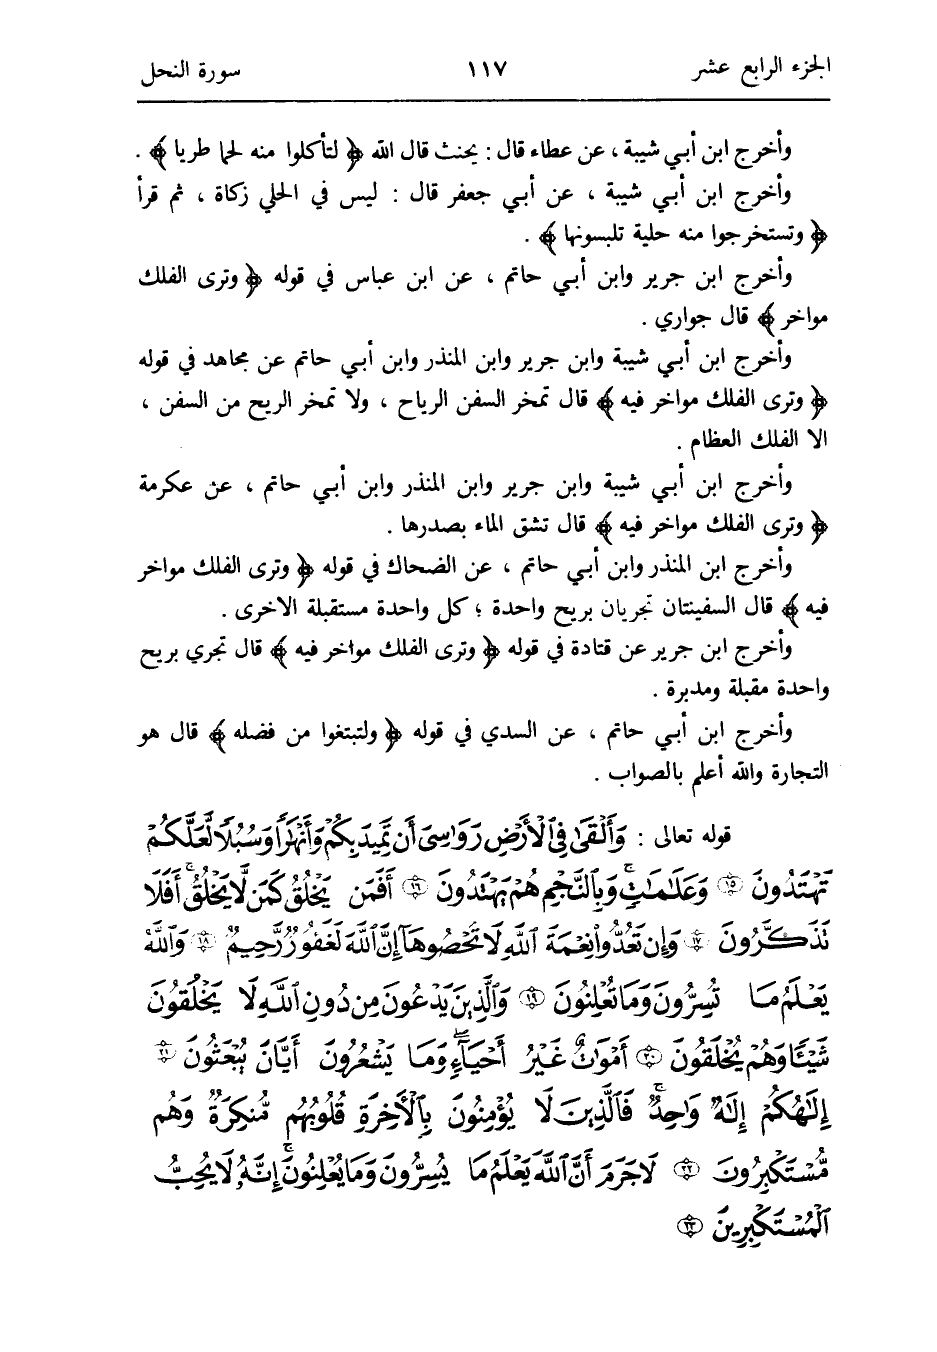 الجزء الرابع عشر ١١٧ سورة النحل
وأخرج ابن أبي شيبة ، عن عطاء قال : يحنث قال الله ﴿ لتأكلوا منه لحما طريا ﴾ .
وأخرج ابن أبي شيبة ، عن أبي جعفر قال : ليس في الحلي زكاة ، ثم قرأ
﴿ وتستخرجوا منه حلية تلبسونها ﴾ .
وأخرج ابن جرير وابن أبي حاتم ، عن ابن عباس في قوله ﴿ وترى الفلك
مواخر ﴾ قال جواري .
وأخرج ابن أبي شيبة وابن جرير وابن المنذر وابن أبي حاتم عن مجاهد في قوله
﴿ وترى الفلك مواخر فيه ﴾ قال تمخر السفن الرياح ، ولا تمخر الريح من السفن ،
الا الفلك العظام .
وأخرج ابن أبي شيبة وابن جرير وابن المنذر وابن أبي حاتم ، عن عكرمة
﴿ وترى الفلك مواخر فيه ﴾ قال تشق الماء بصدرها .
وأخرج ابن المنذر وابن أبي حاتم ، عن الضحاك في قوله ﴿ وترى الفلك مواخر
فيه ﴾ قال السفينتان تجريان بريح واحدة ؛ كل واحدة مستقبلة الاخرى .
وأخرج ابن جرير عن قتادة في قوله ﴿ وترى الفلك مواخر فيه ﴾ قال تجري بريح
واحدة مقبلة ومدبرة .
وأخرج ابن أبي حاتم ، عن السدي في قوله ﴿ ولتبتغوا من فضله ﴾ قال هو
التجارة والله أعلم بالصواب .
قوله تعالى : وَأَلْقَىٰ فِي ٱلْأَرْضِ رَوَٰسِىَ أَن تَمِيدَ بِكُمْ وَأَنْهَٰرًا وَسُبُلًا لَّعَلَّكُمْ
تَهْتَدُونَ ١٥ وَعَلَٰمَٰتٍ ۚ وَبِٱلنَّجْمِ هُمْ يَهْتَدُونَ ١٦ أَفَمَن يَخْلُقُ كَمَن لَّا يَخْلُقُ ۚ أَفَلَا
تَذَكَّرُونَ ١٧ وَإِن تَعُدُّوا۟ نِعْمَةَ ٱللَّهِ لَا تُحْصُوهَآ إِنَّ ٱللَّهَ لَغَفُورٌ رَّحِيمٌ ١٨ وَٱللَّهُ
يَعْلَمُ مَا تُسِرُّونَ وَمَا تُعْلِنُونَ ١٩ وَٱلَّذِينَ يَدْعُونَ مِن دُونِ ٱللَّهِ لَا يَخْلُقُونَ
شَيْـًٔا وَهُمْ يُخْلَقُونَ ٢٠ أَمْوَٰتٌ غَيْرُ أَحْيَآءٍ ۖ وَمَا يَشْعُرُونَ أَيَّانَ يُبْعَثُونَ ٢١
إِلَٰهُكُمْ إِلَٰهٌ وَٰحِدٌ ۚ فَٱلَّذِينَ لَا يُؤْمِنُونَ بِٱلْأَخِرَةِ قُلُوبُهُم مُّنكِرَةٌ وَهُم
مُّسْتَكْبِرُونَ ٢٢ لَا جَرَمَ أَنَّ ٱللَّهَ يَعْلَمُ مَا يُسِرُّونَ وَمَا يُعْلِنُونَ ۚ إِنَّهُۥ لَا يُحِبُّ
ٱلْمُسْتَكْبِرِينَ ٢٣